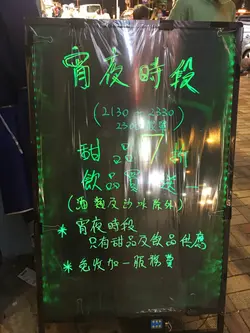 宵夜時段
(2130 - 2330)
甜品7折
飲品買一送一
(酒類及沙冰除外)
* 宵夜時段
只有甜品及飲品供應
* 免收加一服務費